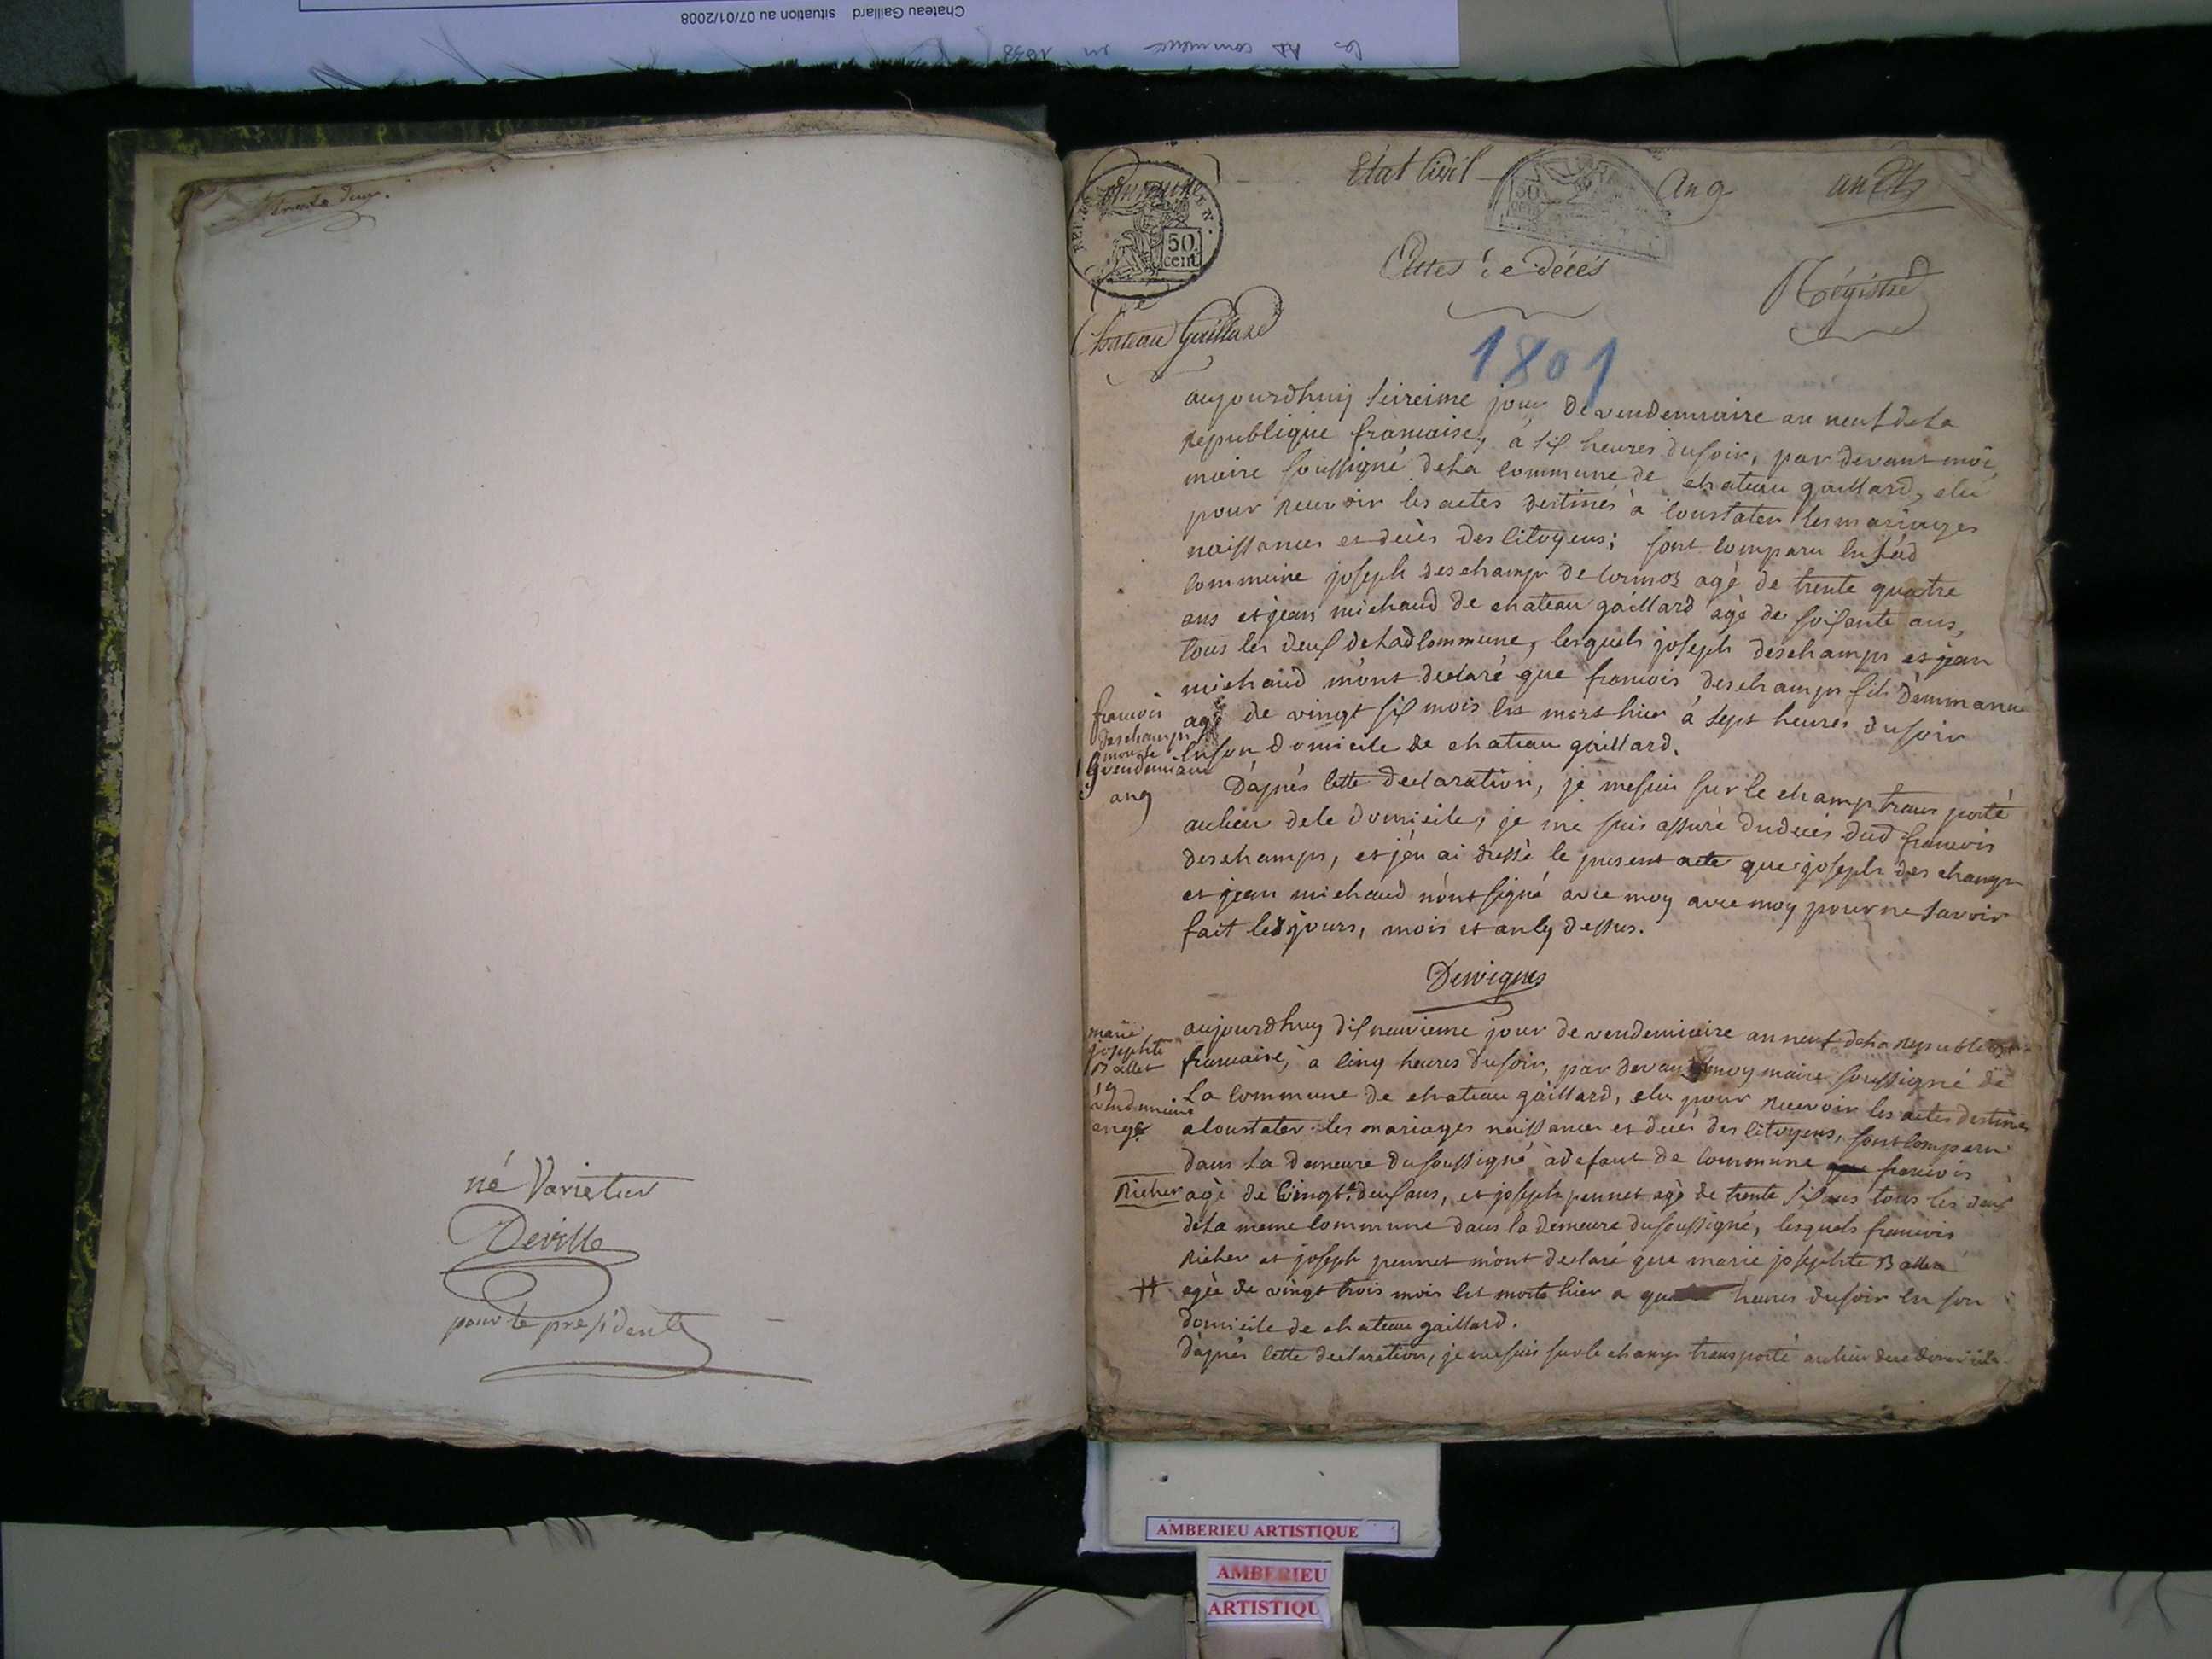 Chateau Gaillard situation au 07/01/2008
trente deux.
né Varietur
Deville
pour le president
Etat Civil
An 9
50 cent
Actes de décès
Régistre
Chateau Gaillard
1801
aujourdhuy seireime jour de vendemiaire an neuf de la
republique francaise, à six heures du soir, par devant moi
maire soussigné de la commune de chateau gaillard, elu
pour recevoir les actes destinés à constater les mariages
naissances et décès des citoyens; sont comparu en lad
commune joseph deschamps de cormoz agé de trente quatre
ans et jean michaud de chateau gaillard agé de soisante ans,
tous les deux de lad commune, lesquels joseph deschamps et jean
michaud m'ont declaré que francois deschamps fils d'emmanuel
agé de vingt six mois est mort hier à sept heures du soir
en son domicile de chateau gaillard.
francois
deschamps
vendemiaire
an 9
D'après cette declaration, je me suis sur le champ transporté
au lieu de ce domicile, je me suis assuré du décès dud francois
deschamps, et j'en ai dressé le present acte que joseph deschamps
et jean michaud n'ont signé avec moy avec moy pour ne savoir
fait les jours, mois et an cy dessus.
Dervignes
marie
josephte
Ballet
19
vendemiaire
an 9
aujourdhuy dix neuvieme jour de vendemiaire an neuf de la republique
francaise, à cinq heures du soir, par devant moy maire soussigné de
la commune de chateau gaillard, elu pour recevoir les actes destinés
a constater les mariages naissances et décès des citoyens, sont comparu
dans la demeure du soussigné à defaut de commune francois
Richer agé de vingt deux ans, et joseph pennet agé de trente six ans tous les deux
de la meme commune dans la demeure du soussigné, lesquels francois
Richer et joseph pennet m'ont declaré que marie josephte Ballet
# agée de vingt trois mois est morte hier a heures du soir en son
domicile de chateau gaillard.
d'après cette declaration, je me suis sur le champ transporté au lieu de ce domicile
AMBERIEU ARTISTIQUE
AMBERIEU
ARTISTIQU